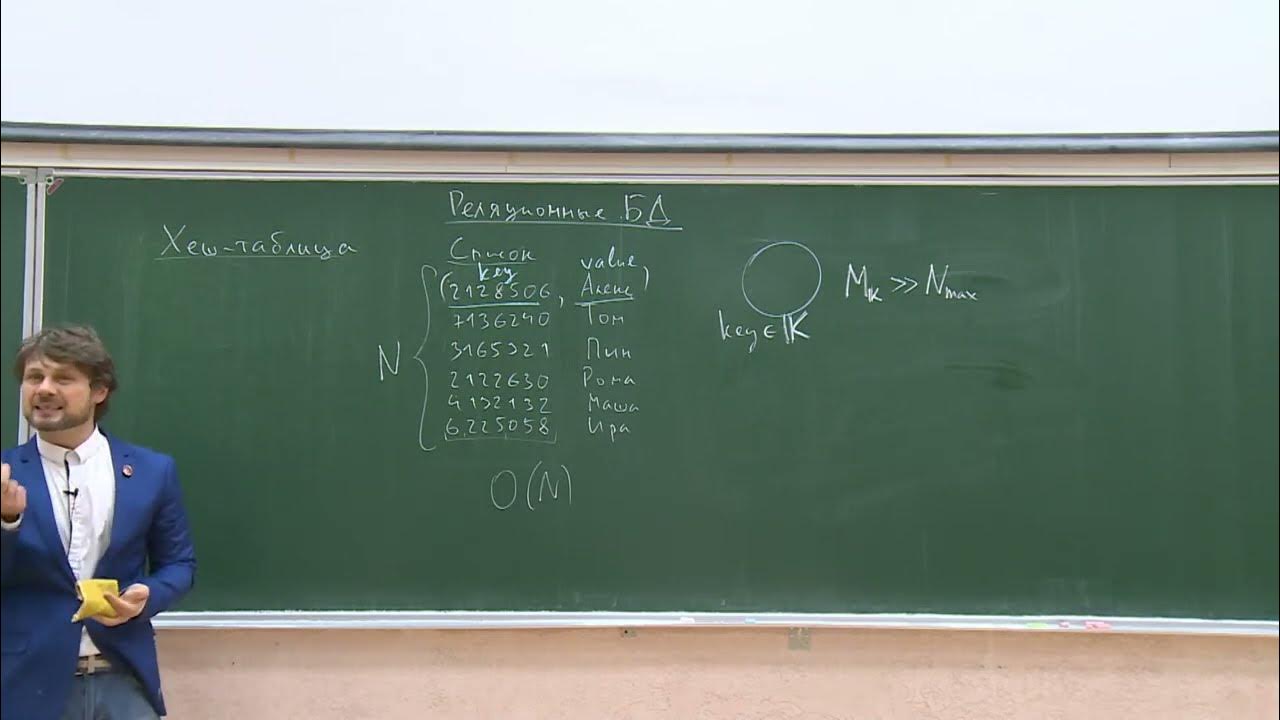 Реляционные БД
Хеш-таблица
Список
key value
N
(2128506, Алекс)
7136240 Том
3165321 Пин
2122630 Рома
4132132 Маша
6225058 Ира
O(N)
key ∈ K
M_K >> N_max